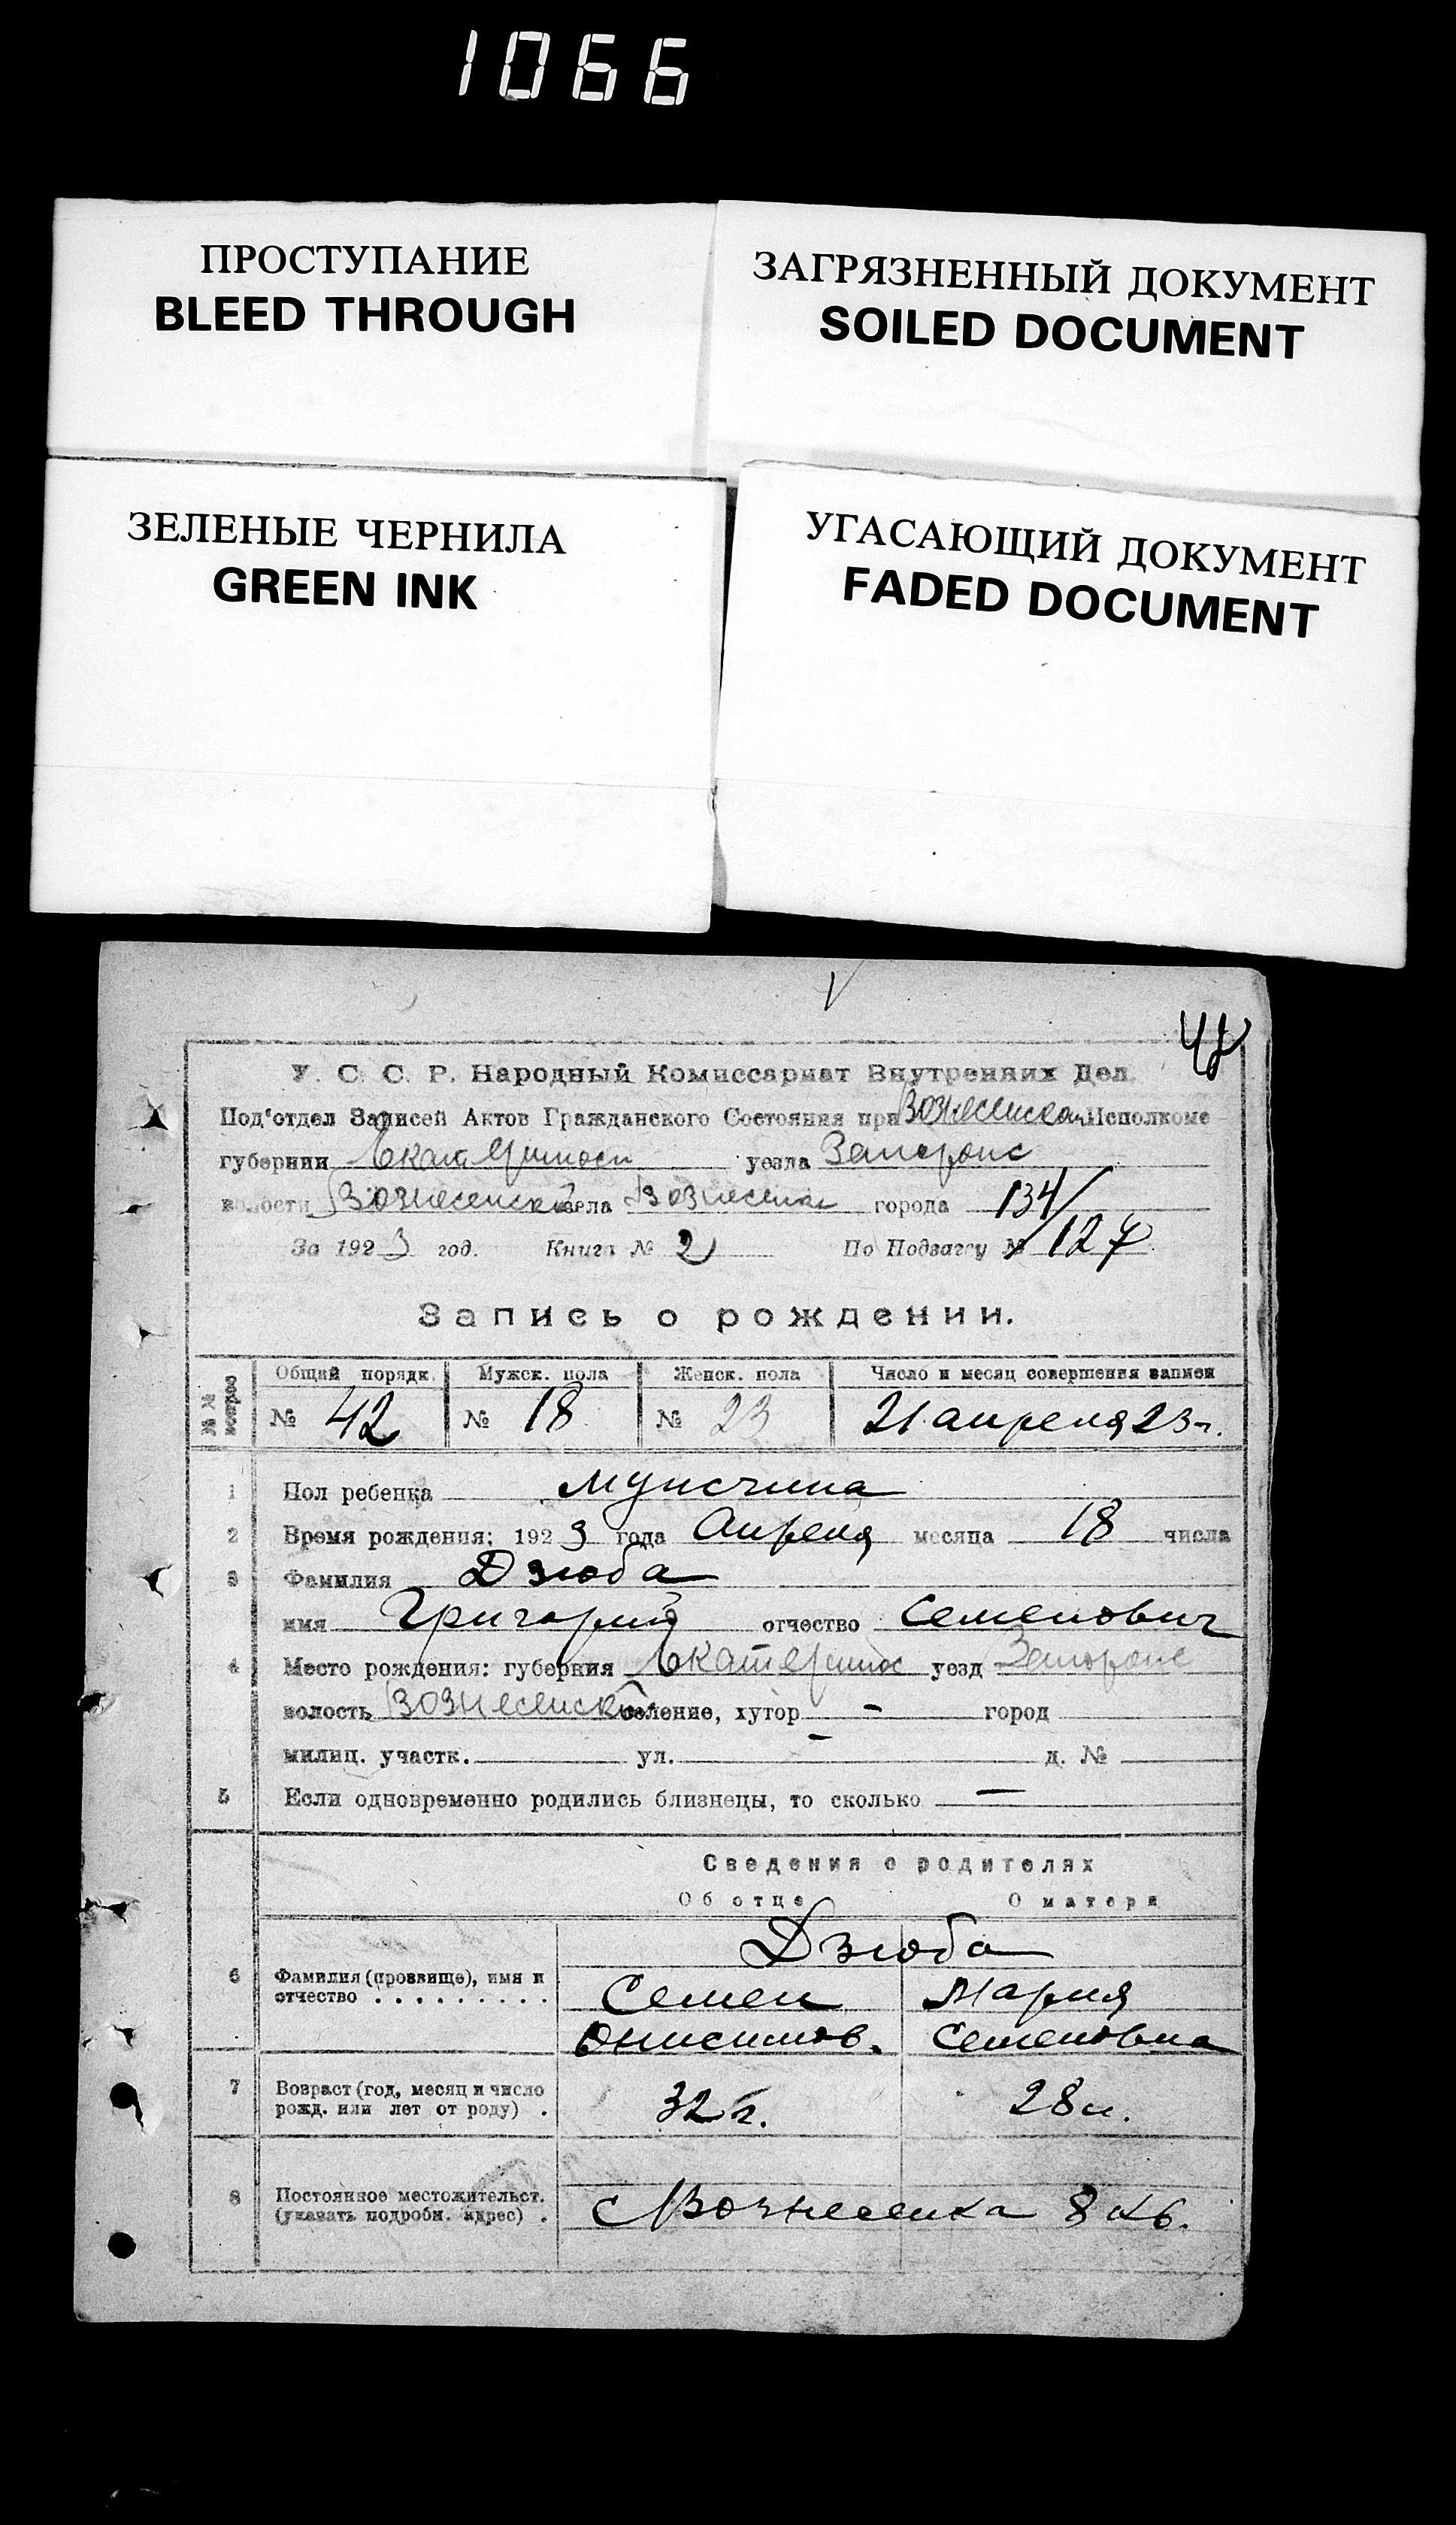 1066
ПРОСТУПАНИЕ
BLEED THROUGH
ЗАГРЯЗНЕННЫЙ ДОКУМЕНТ
SOILED DOCUMENT
ЗЕЛЕНЫЕ ЧЕРНИЛА
GREEN INK
УГАСАЮЩИЙ ДОКУМЕНТ
FADED DOCUMENT
У. С. С. Р. Народный Комиссариат Внутренних Дел.
Под'отдел Записей Актов Гражданского Состояния при Вознесенском Исполкоме
губернии Екатериносл уезла Запорожс
волости Вознесенской села Вознесенка города 134/
За 1923 год. Книга № 2 По Подзагсу № 127
Запись о рождении.
№№ вопрос Общий порядк. Мужск. пола Женск. пола Число и месяц совершения записи
№ 42 № 18 № 23 21 апреля 23 г.
1 Пол ребенка мужчина
2 Время рождения: 1923 года Апреля месяца 18 числа
3 Фамилия Дзюба
имя Григорий отчество Семенович
4 Место рождения: губерния Екатеринос уезд Запорожс
волость Вознесенской селение, хутор - город
милиц. участк. ул. - д. №
5 Если одновременно родились близнецы, то сколько —
Сведения о родителях
Об отце О матери
Дзюба
6 Фамилия (прозвище), имя и отчество . . . . . . . . . Семен Мария
Онисимов. Семеновна
7 Возраст (год, месяц и число рожд. или лет от роду) . 32 г. 28 л.
8 Постоянное местожительст. (указать подробн. адрес) . с Вознесенка 8 кв.